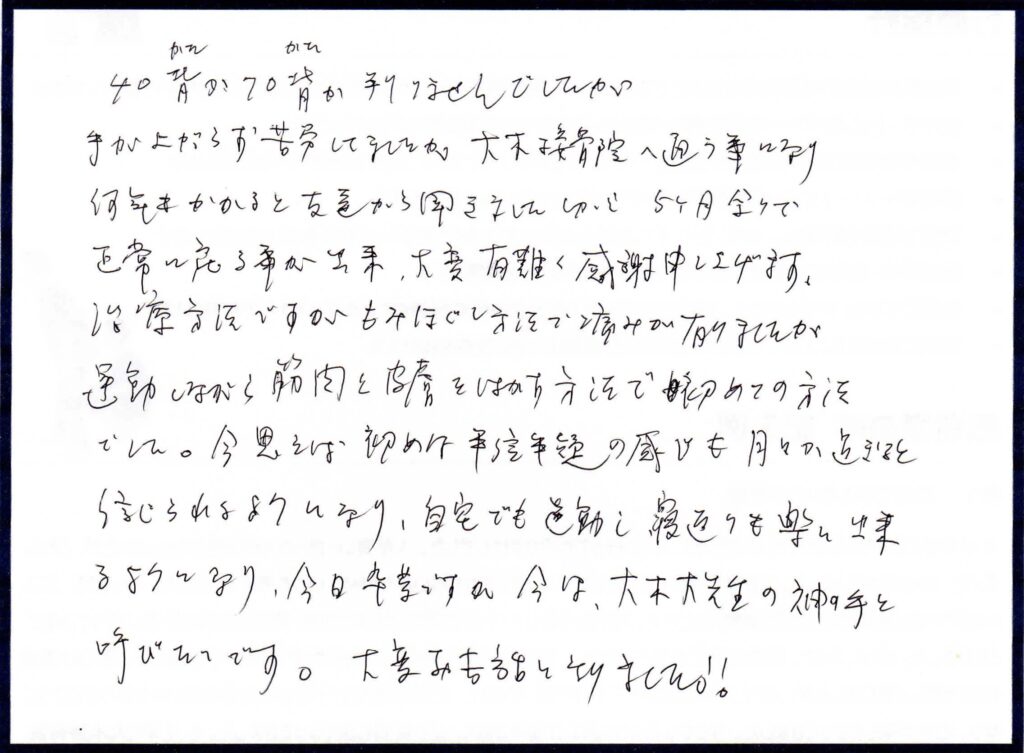 かた かた
40背か70背か判りませんでしたが
手が上がらず苦労してましたが、大木接骨院へ通う事になり
何年もかかると友達から聞きましたが 5ヶ月余りで
正常に戻る事が出来、大変有難く感謝申し上げます。
治療方法ですがもみほぐし方法で痛みが有りましたが
運動しながら筋肉と皮膚をはがす方法で 初めての方法
でした。今思えば初めは半信半疑の感じも月日が過ぎると
信じられるようになり、自宅でも運動し寝返りも楽に出来
るようになり、今日卒業ですが 今は、大木大先生の神の手と
呼びたいです。大変お世話になりました!!